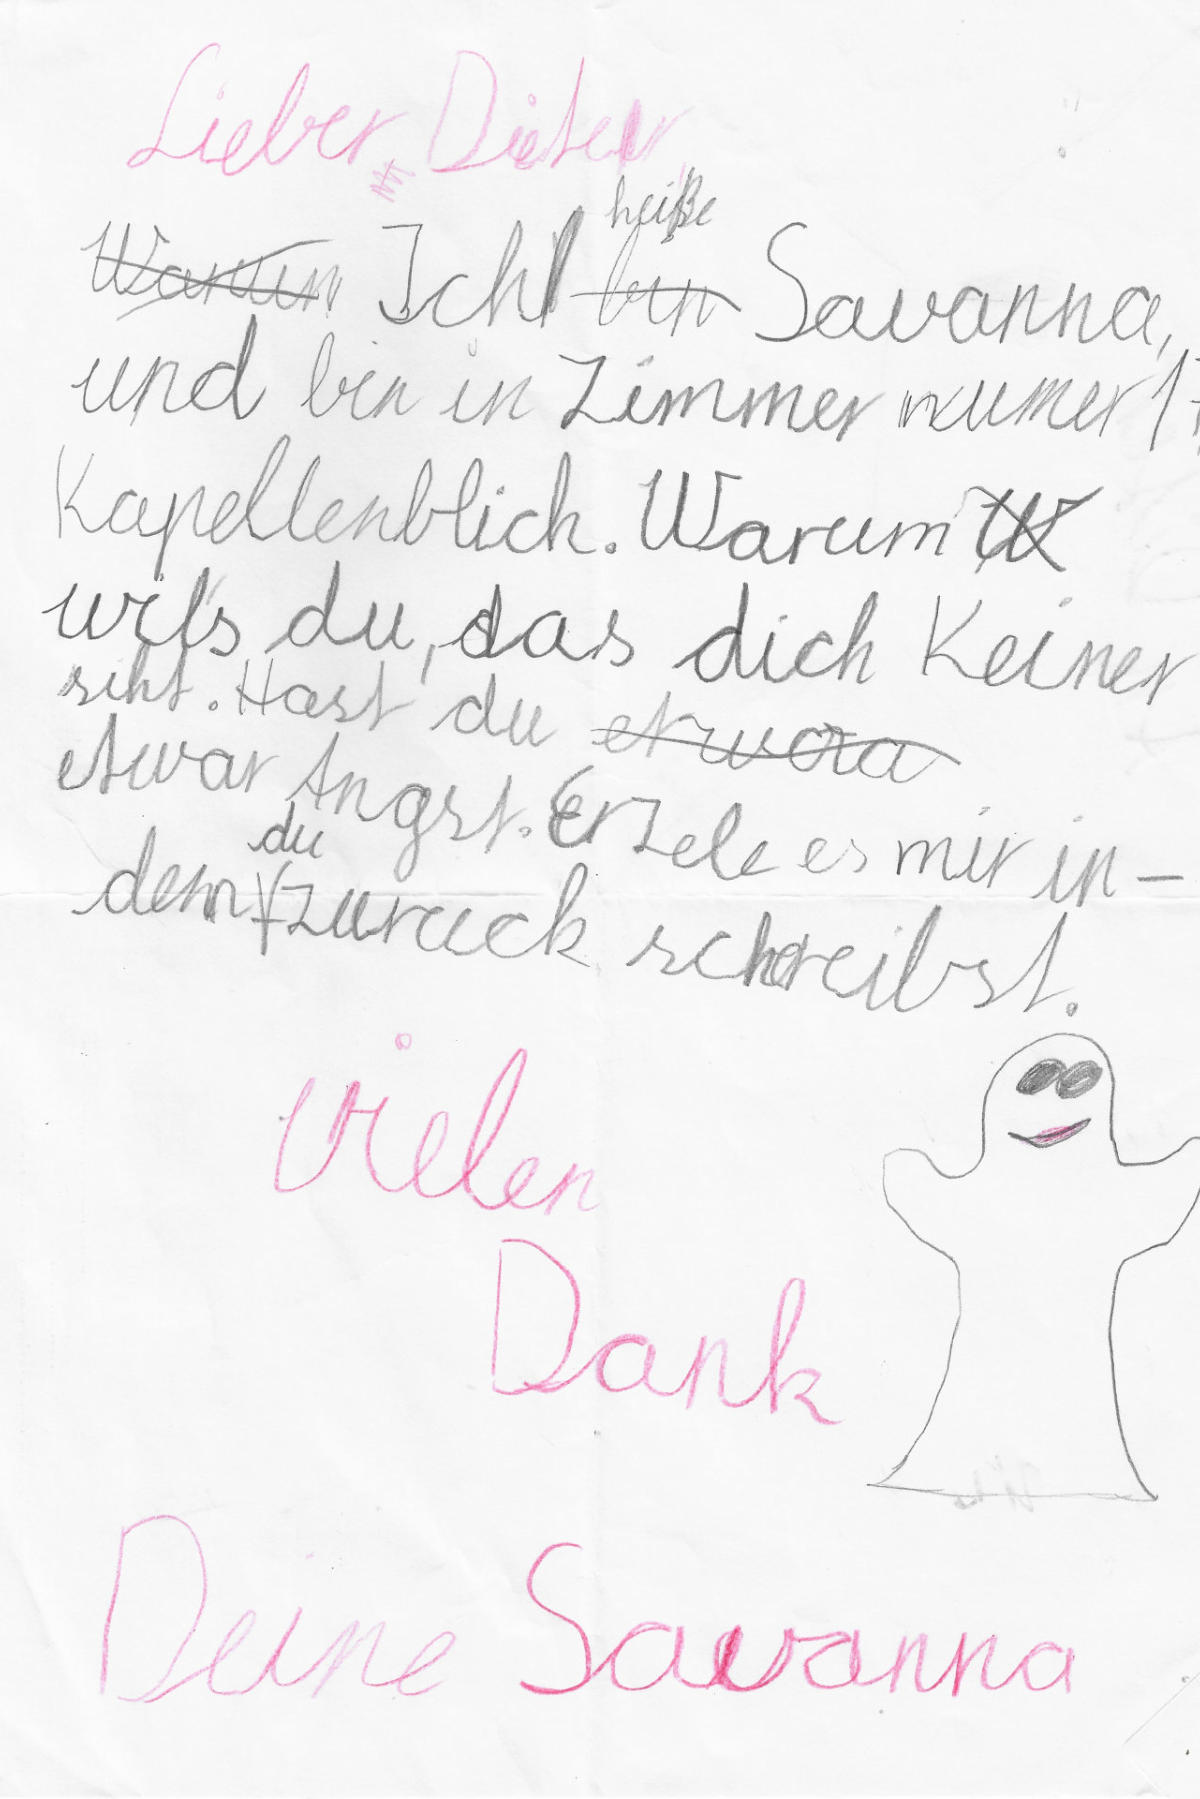 Lieber Dieter
Warum Ich heiße bin Savanna,
und bin in Zimmer numer 17
Kapellenblick. Warum W
wils du, das dich Keiner
siht. Hast du etwora
etwar Angst. Erzele es mir in-
dem du zurück schreibst.
Vielen
Dank
Deine Savanna